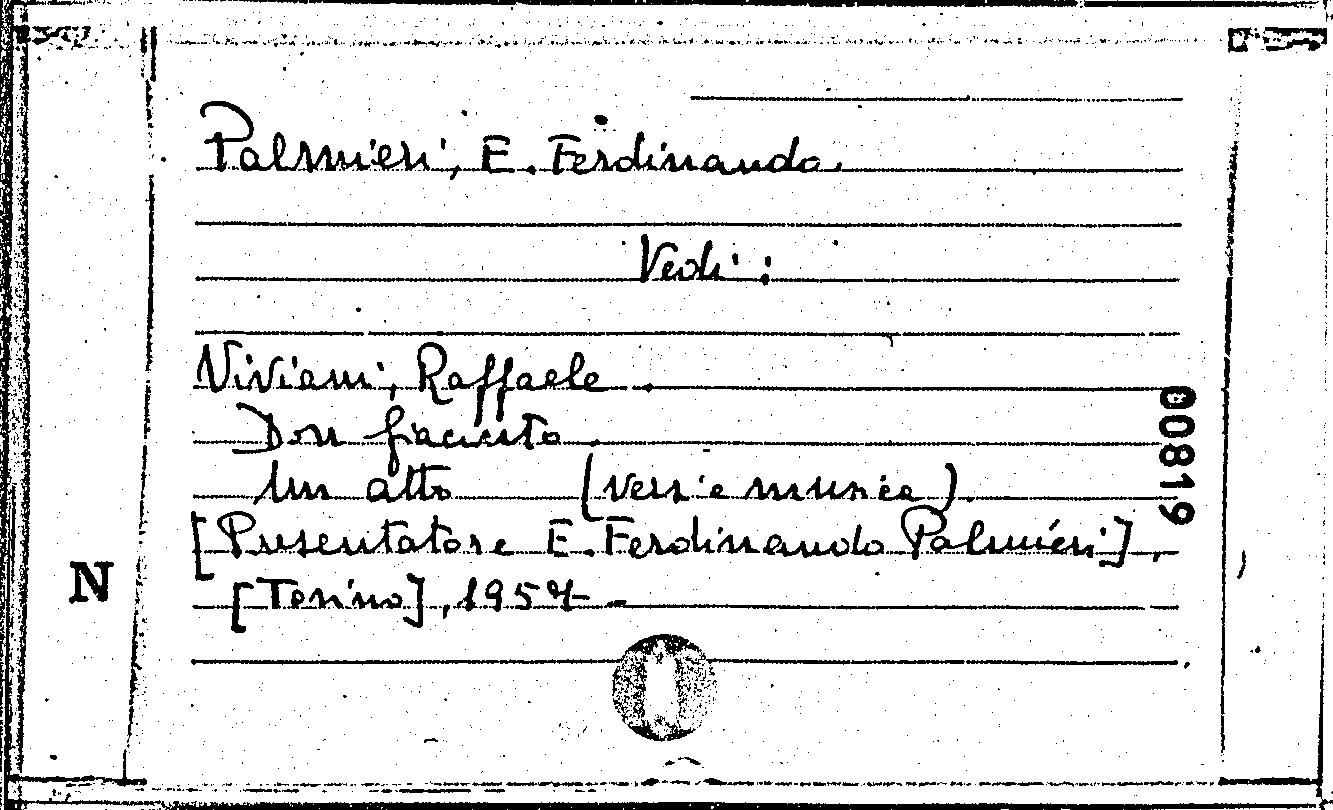 Palmieri, E. Ferdinando.
Vedi:
Viviani, Raffaele.
Don Giacinto.
Un atto (versi e musica).
[Presentatore E. Ferdinando Palmieri],
[Torino], 1957-
00819
N